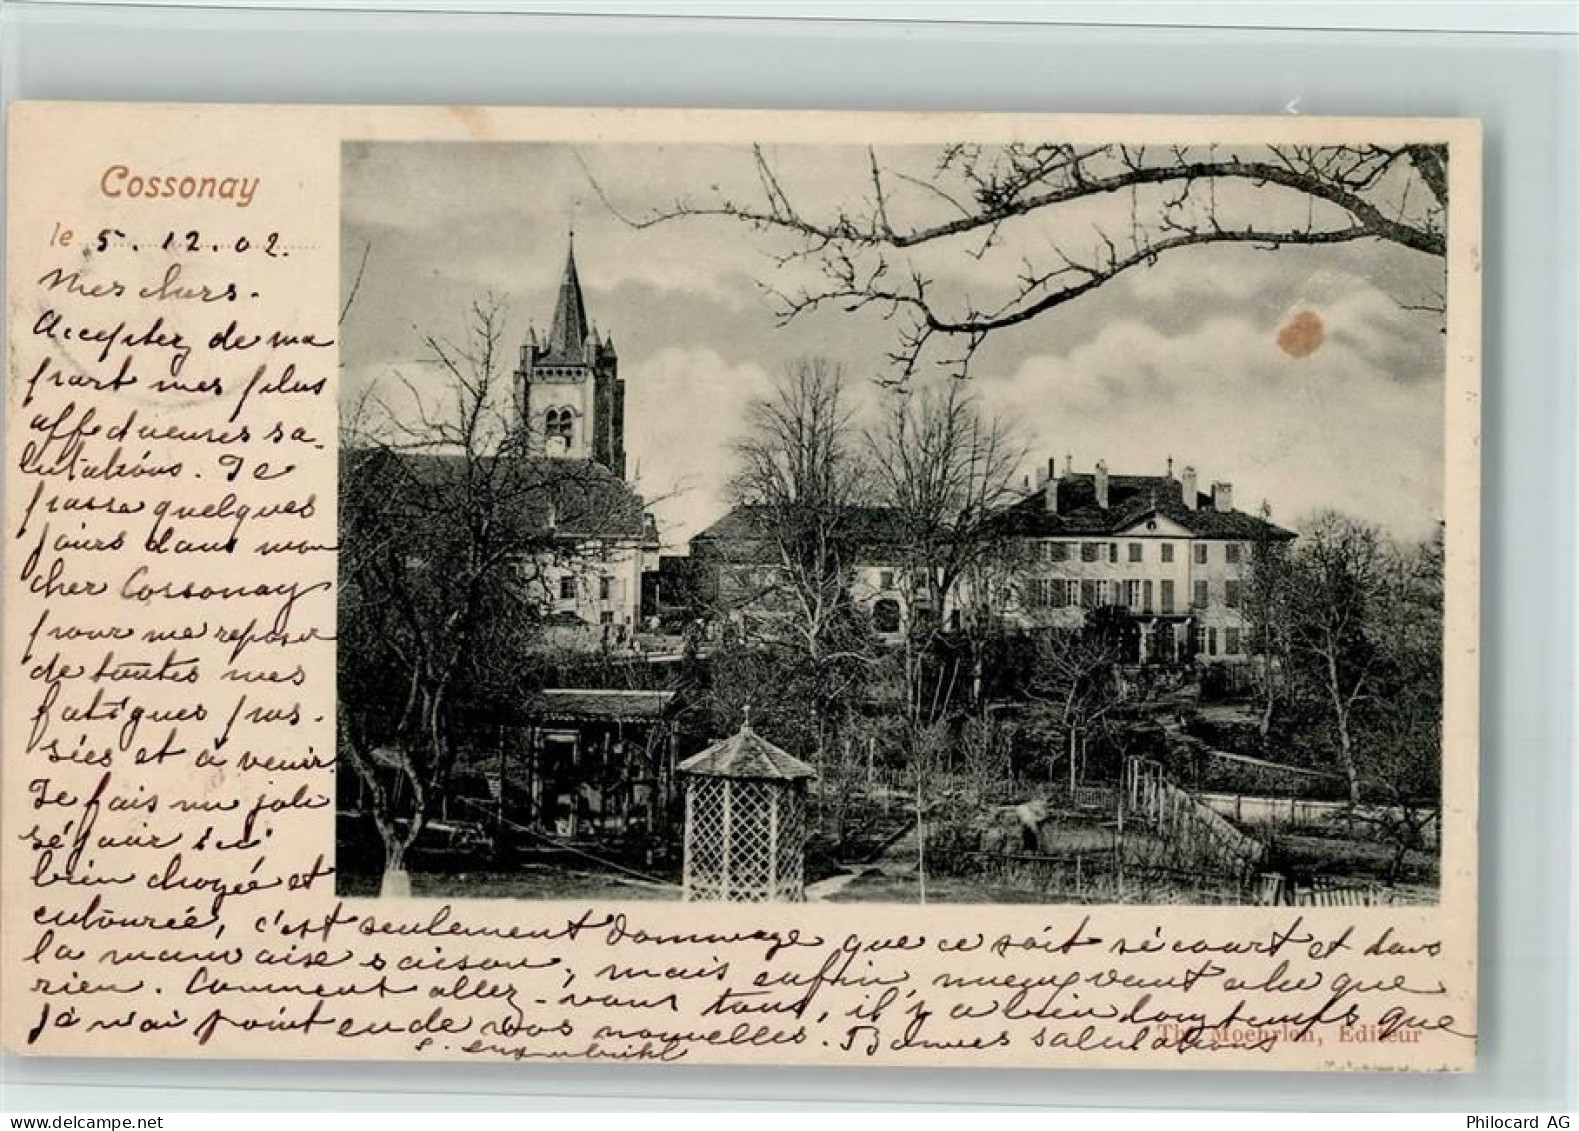 Cossonay
le 5.12.02.
Mes chers.
Acceptez de ma
part mes plus
affectueuses sa-
lutations. Je
passe quelques
jours dans mon
cher Cossonay
pour me reposer
de toutes mes
fatigues pas-
sées et à venir.
Je fais un joli
séjour ici
bien choyée et
entourée, c'est seulement dommage que ce soit si court et dans
la mauvaise saison, mais enfin, mieux vaut cela que
rien. Comment allez-vous tous, il y a bien longtemps que
je n'ai point eu de vos nouvelles. Bonnes salutations
Th. Moehrlen, Editeur
Philocard AG
www.delcampe.net